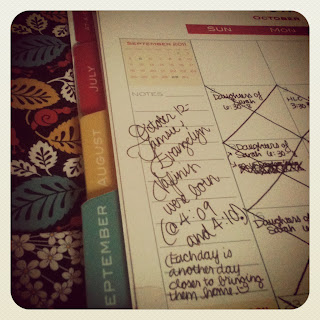 OCTOBER
SUN MON
SEPTEMBER 2011
NOTES
October 12-
Samuel &
Evangelyn
were born
(@ 4:09
and 4:10)
Each day is
another day
closer to bringing
them home!
Daughters of
Sarah
6:30
HLG
Daughters of
Sarah 6:30
Daughters of
Sarah 6:30
JULY
AUGUST
SEPTEMBER